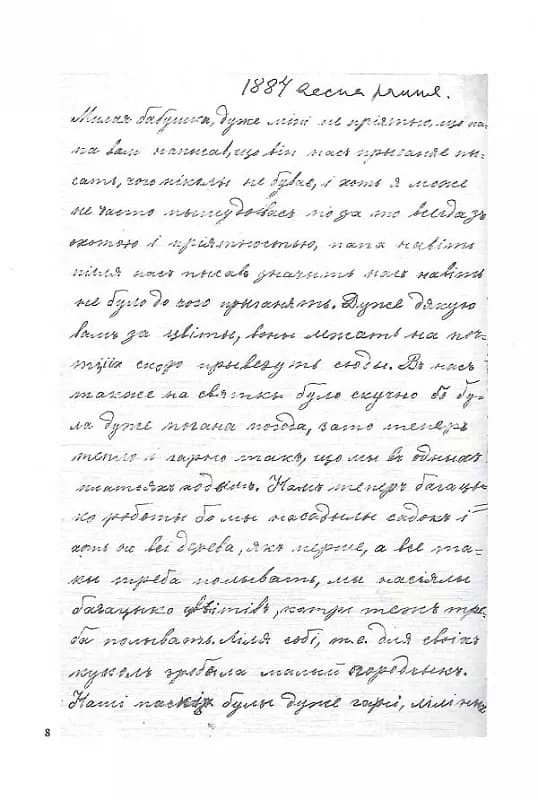 1884 весна рання.
Милая бабушка, дуже міні не пріятно, що па-
па вам написав, що він насъ прыганяе пы-
сать, чого николы не бувае, і хоть я може
не часто пышу до васъ но за то всегда зъ
охотою і пріятностью, папа навіть
після насъ пысав значить насъ навіть
не було до чого прыганять. Дуже дякую
вамъ за цвіты, воны лежать на поч-
ті, іх скоро прывезуть сюды. Въ насъ
також на святкы було скучно бо бу-
ла дуже погана погода, зато теперъ
тепло і гарно такъ, що мы въ одныхъ
платтяхъ ходымъ. Намъ теперъ багаць-
ко роботы бо мы насадылы садокъ і
хоть не всі дерева, якъ перше, а все та-
кы треба полывать, мы насіялы
багацько цвітівъ, котрі тежъ тре-
ба полывать. Ліля собі, т.е. для своіхъ
куколъ зробыла малый городчыкъ.
Наші паскы булы дуже гарні, Лілінъ
8